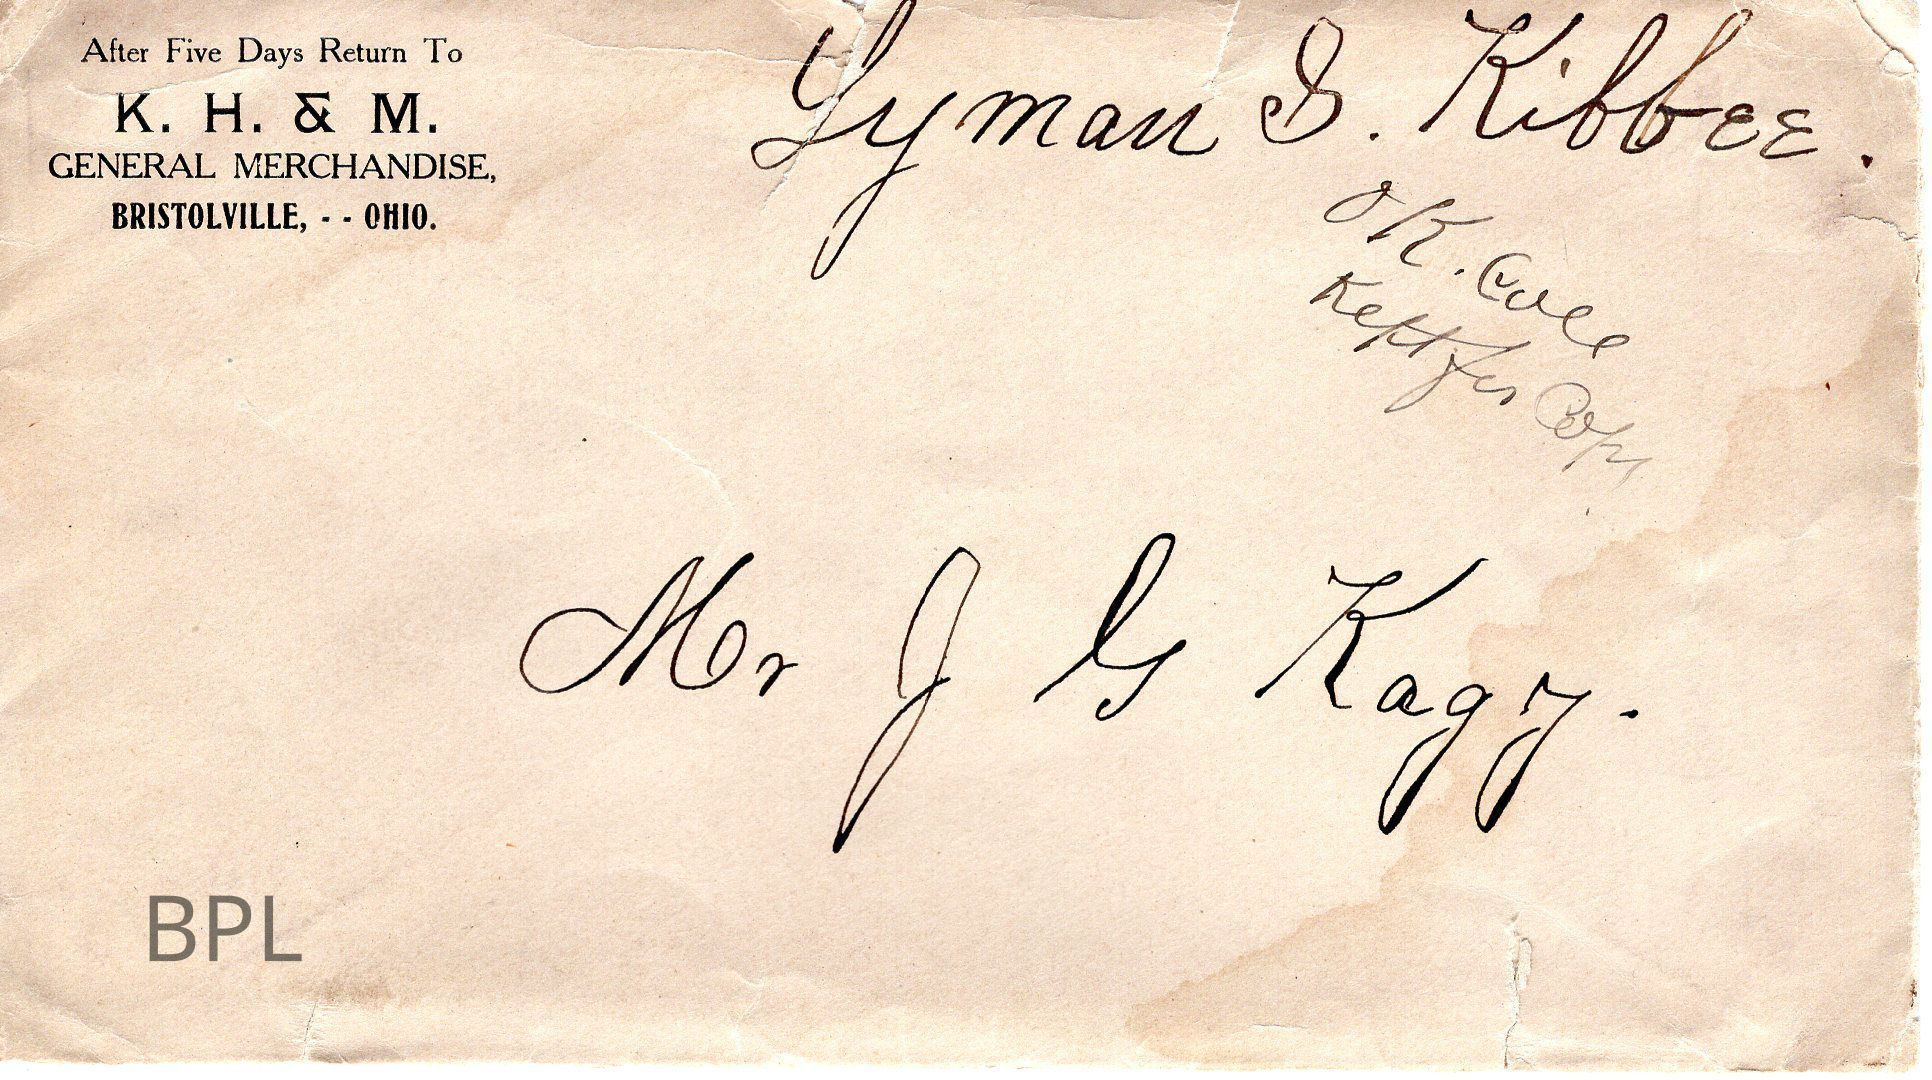 After Five Days Return To
K. H. & M.
GENERAL MERCHANDISE,
BRISTOLVILLE, - - OHIO.
Lyman S. Kibbee.
OK.
Kept for Copy
Mr J G Kagy.
BPL